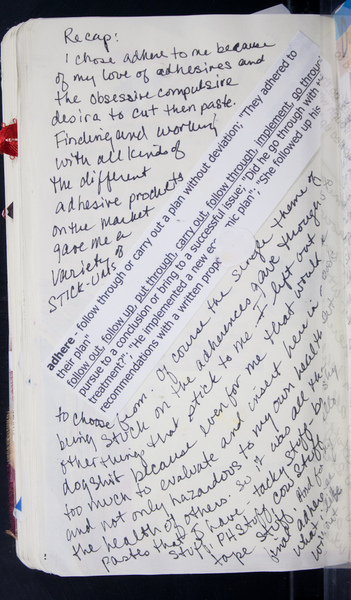 Recap:
I chose adhere to me because
of my love of adhesives and
the obsessive compulsive
desire to cut then paste.
Finding and working
with all kinds of
the different
adhesive products
on the market
gave me a
variety of
STICK-UMS
adhere - follow through or carry out a plan without deviation; "They adhered to
their plan"
follow out, follow up, put through, carry out, follow through, implement, go through
pursue to a conclusion or bring to a successful issue; "Did he go through with
treatment?"; "He implemented a new mic plan"; "She followed up his
recommendations with a written prop
to choose from. Of course the single theme of
being STUCK on the adherences gave through to
other things that stick to me. I left out
dogshit because even for me that would
too much to evaluate and insert here in
and not only hazardous to my own health
the health of others. So, it was all the
pastes that I have, tacky stuff,
stuff, PH stuff, cow stuff
tape stuff